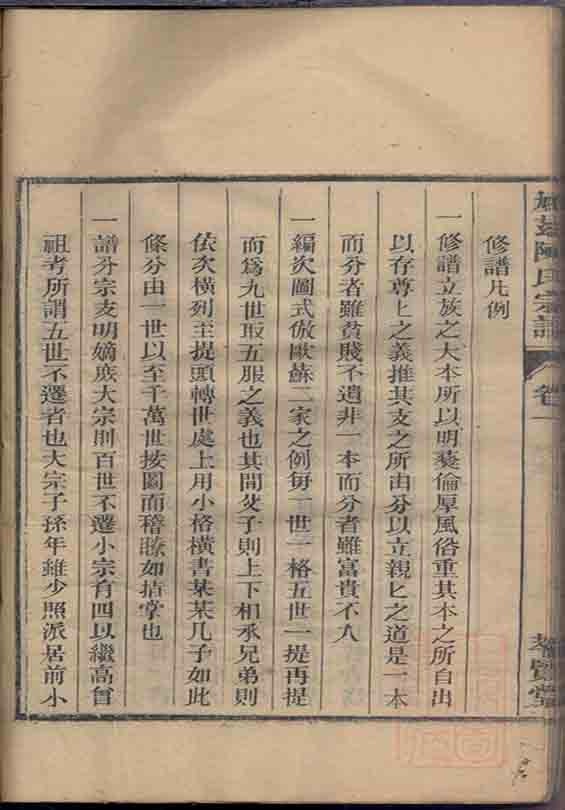 陳氏宗譜
卷一
修譜凡例
一修譜立族之大本所以明彜倫厚風俗重其本之所自出
以存尊匕之義推其支之所由分以立親匕之道是一本
而分者雖貧賤不遺非一本而分者雖富貴不入
一編次圖式倣歐蘇二家之例每一世一格五世一提再提
而爲九世取五服之義也其間父子則上下相承兄弟則
依次橫列至提頭轉世處上用小格橫書某某几子如此
條分由一世以至千萬世按圖而稽瞭如指掌也
一譜分宗支明嫡庶大宗則百世不遷小宗有四以繼高曾
祖考所謂五世不遷者也大宗子孫年雖少照派居前小